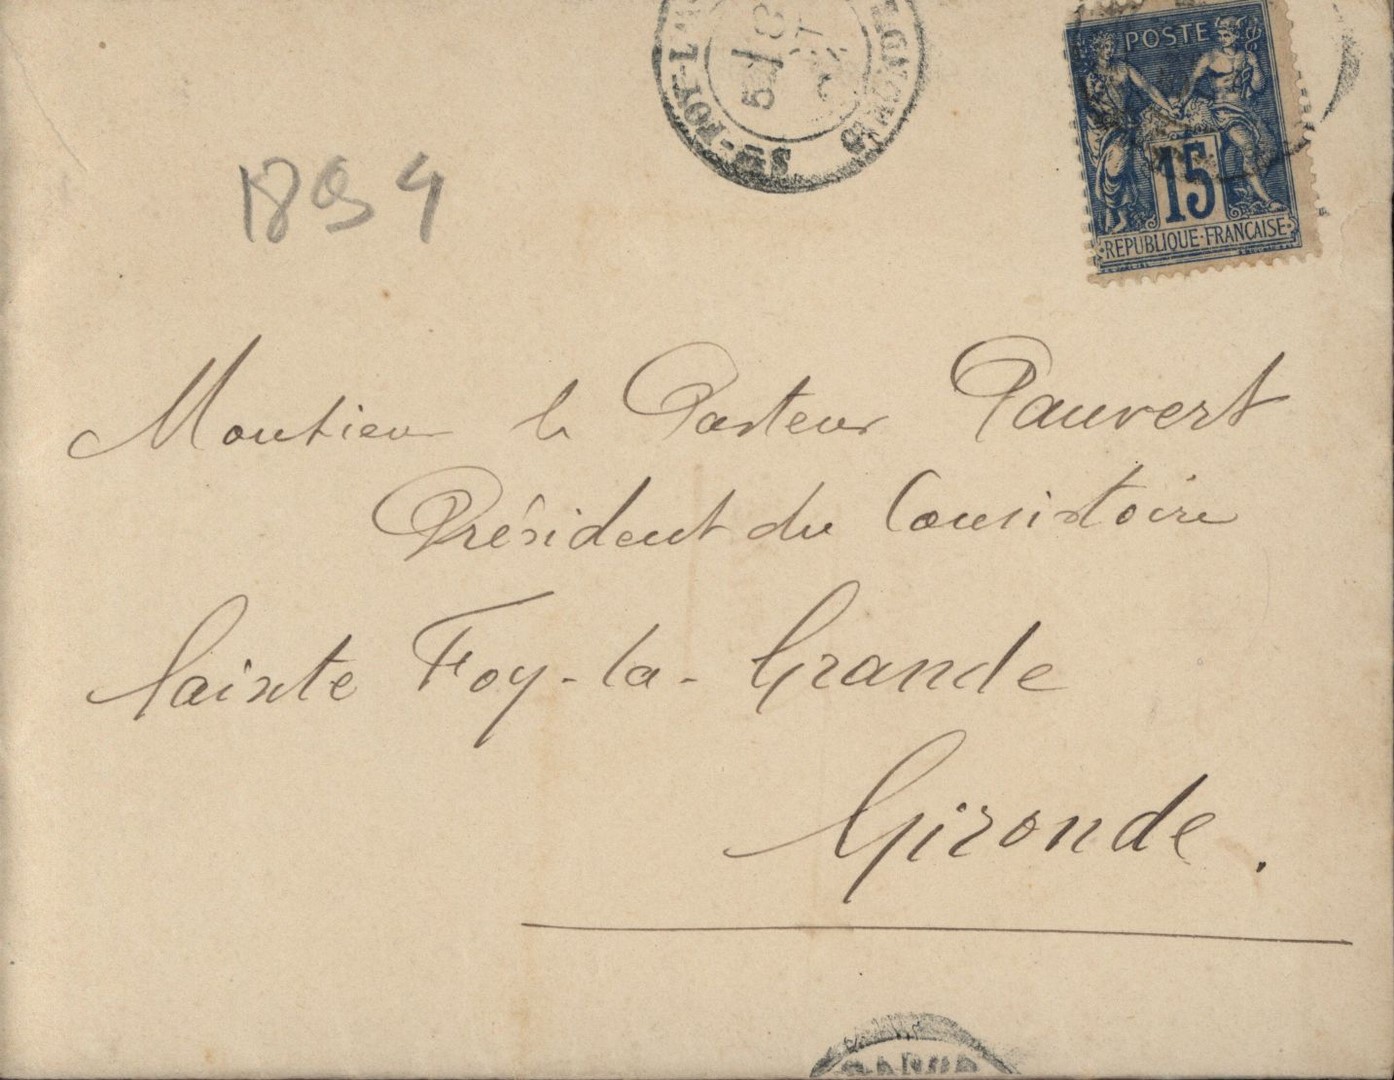 1894
POSTE
15
REPUBLIQUE FRANÇAISE
Monsieur le Pasteur Pauvert
Président du Consistoire
Sainte Foy-la-Grande
Gironde.